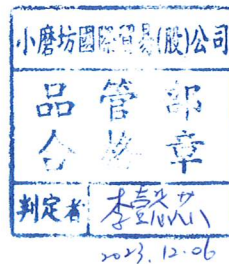 小磨坊國際貿易(股)公司
品管部
合格章
判定者
2023.12.06